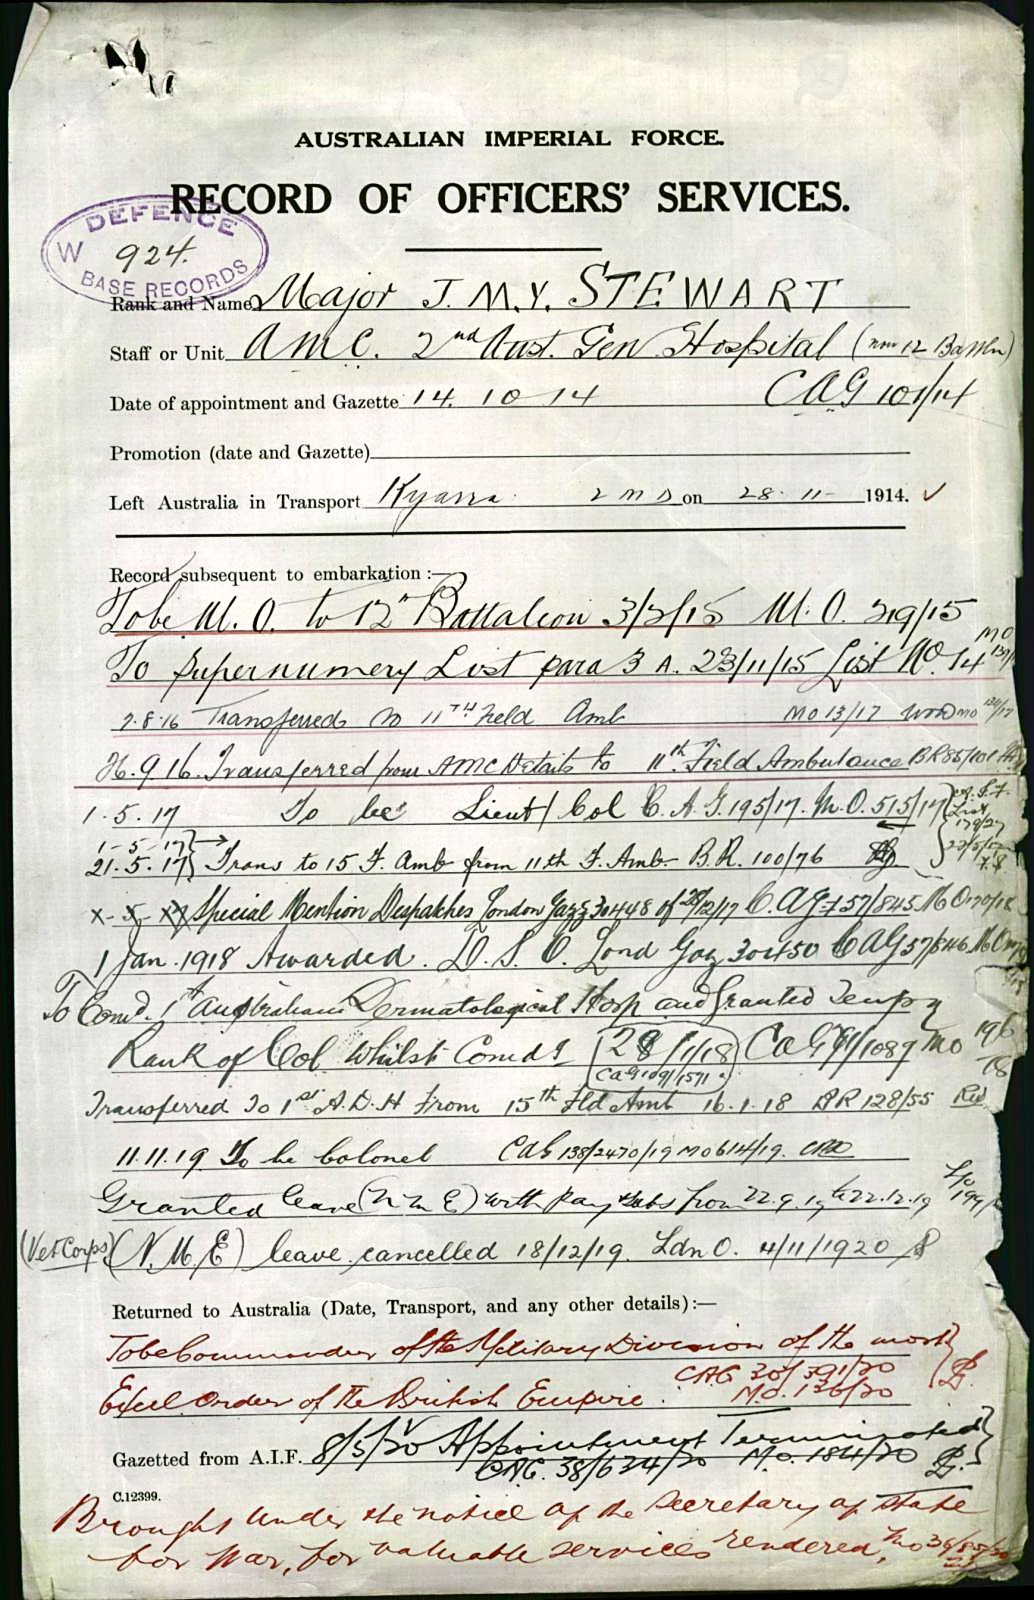 AUSTRALIAN IMPERIAL FORCE.
RECORD OF OFFICERS' SERVICES.
DEFENCE
W 924.
BASE RECORDS
Rank and Name Major J. M. Y. STEWART
Staff or Unit A.M.C. 2nd Aust. Gen. Hospital (now 12 Battln)
Date of appointment and Gazette 14. 10 14 CAG 101/14
Promotion (date and Gazette)
Left Australia in Transport Kyarra. 2 MD on 28. 11- 1914. ✓
Record subsequent to embarkation :—
To be M. O. to 12th Battalion 3/2/15 M. O. 219/15
To Supernumery List para 3 A. 23/11/15 List No. 14 MO
7.8.16 Transferred to 11TH Field Amb MO 13/17 MO
26.9.16. Transferred from AMC Details to 11th Field Ambulance BR 85/101
1.5.17 To be Lieut/Col C.A.G. 195/17. M.O. 515/17 A.I.F. List 179/27
1-5-17
21.5.17 } → Trans to 15 F. Amb from 11th F. Amb. B.R. 100/76
X-5-17 Special Mention Despatches London Gazz 30448 of 28/12/17 C.AG 57/845 MO 170/18
1 Jan. 1918 Awarded. D. S. O. Lond Gaz 30450 CAG 57/846 MO
To Comd. 1st Australian Dermatological Hosp and Granted Tempy
Rank of Col whilst Comdg (28/1/18) CAG 71/1089 MO 196/18
CAG 109/1571
Transferred To 1st A.D.H From 15th Fld Amb 16.1.18 BR 128/55
11.11.19 To be Colonel CAG 138/2470/19 MO 614/19.
Granted leave (N M E) with pay & subs from 22.9.19 to 22.12.19
(Vet Corps) (N. M. E) leave cancelled 18/12/19. Ldn O. 4/11/1920
Returned to Australia (Date, Transport, and any other details):—
To be Commander of the Military Division of the most
CAG 30/391/20
Excel. Order of the British Empire. M.O. 136/20
Gazetted from A.I.F. 8/5/20 Appointment Terminated
CAG. 38/634/20 M.O. 184/20
C.12399.
Brought under the notice of the Secretary of State
for War, for valuable services rendered,